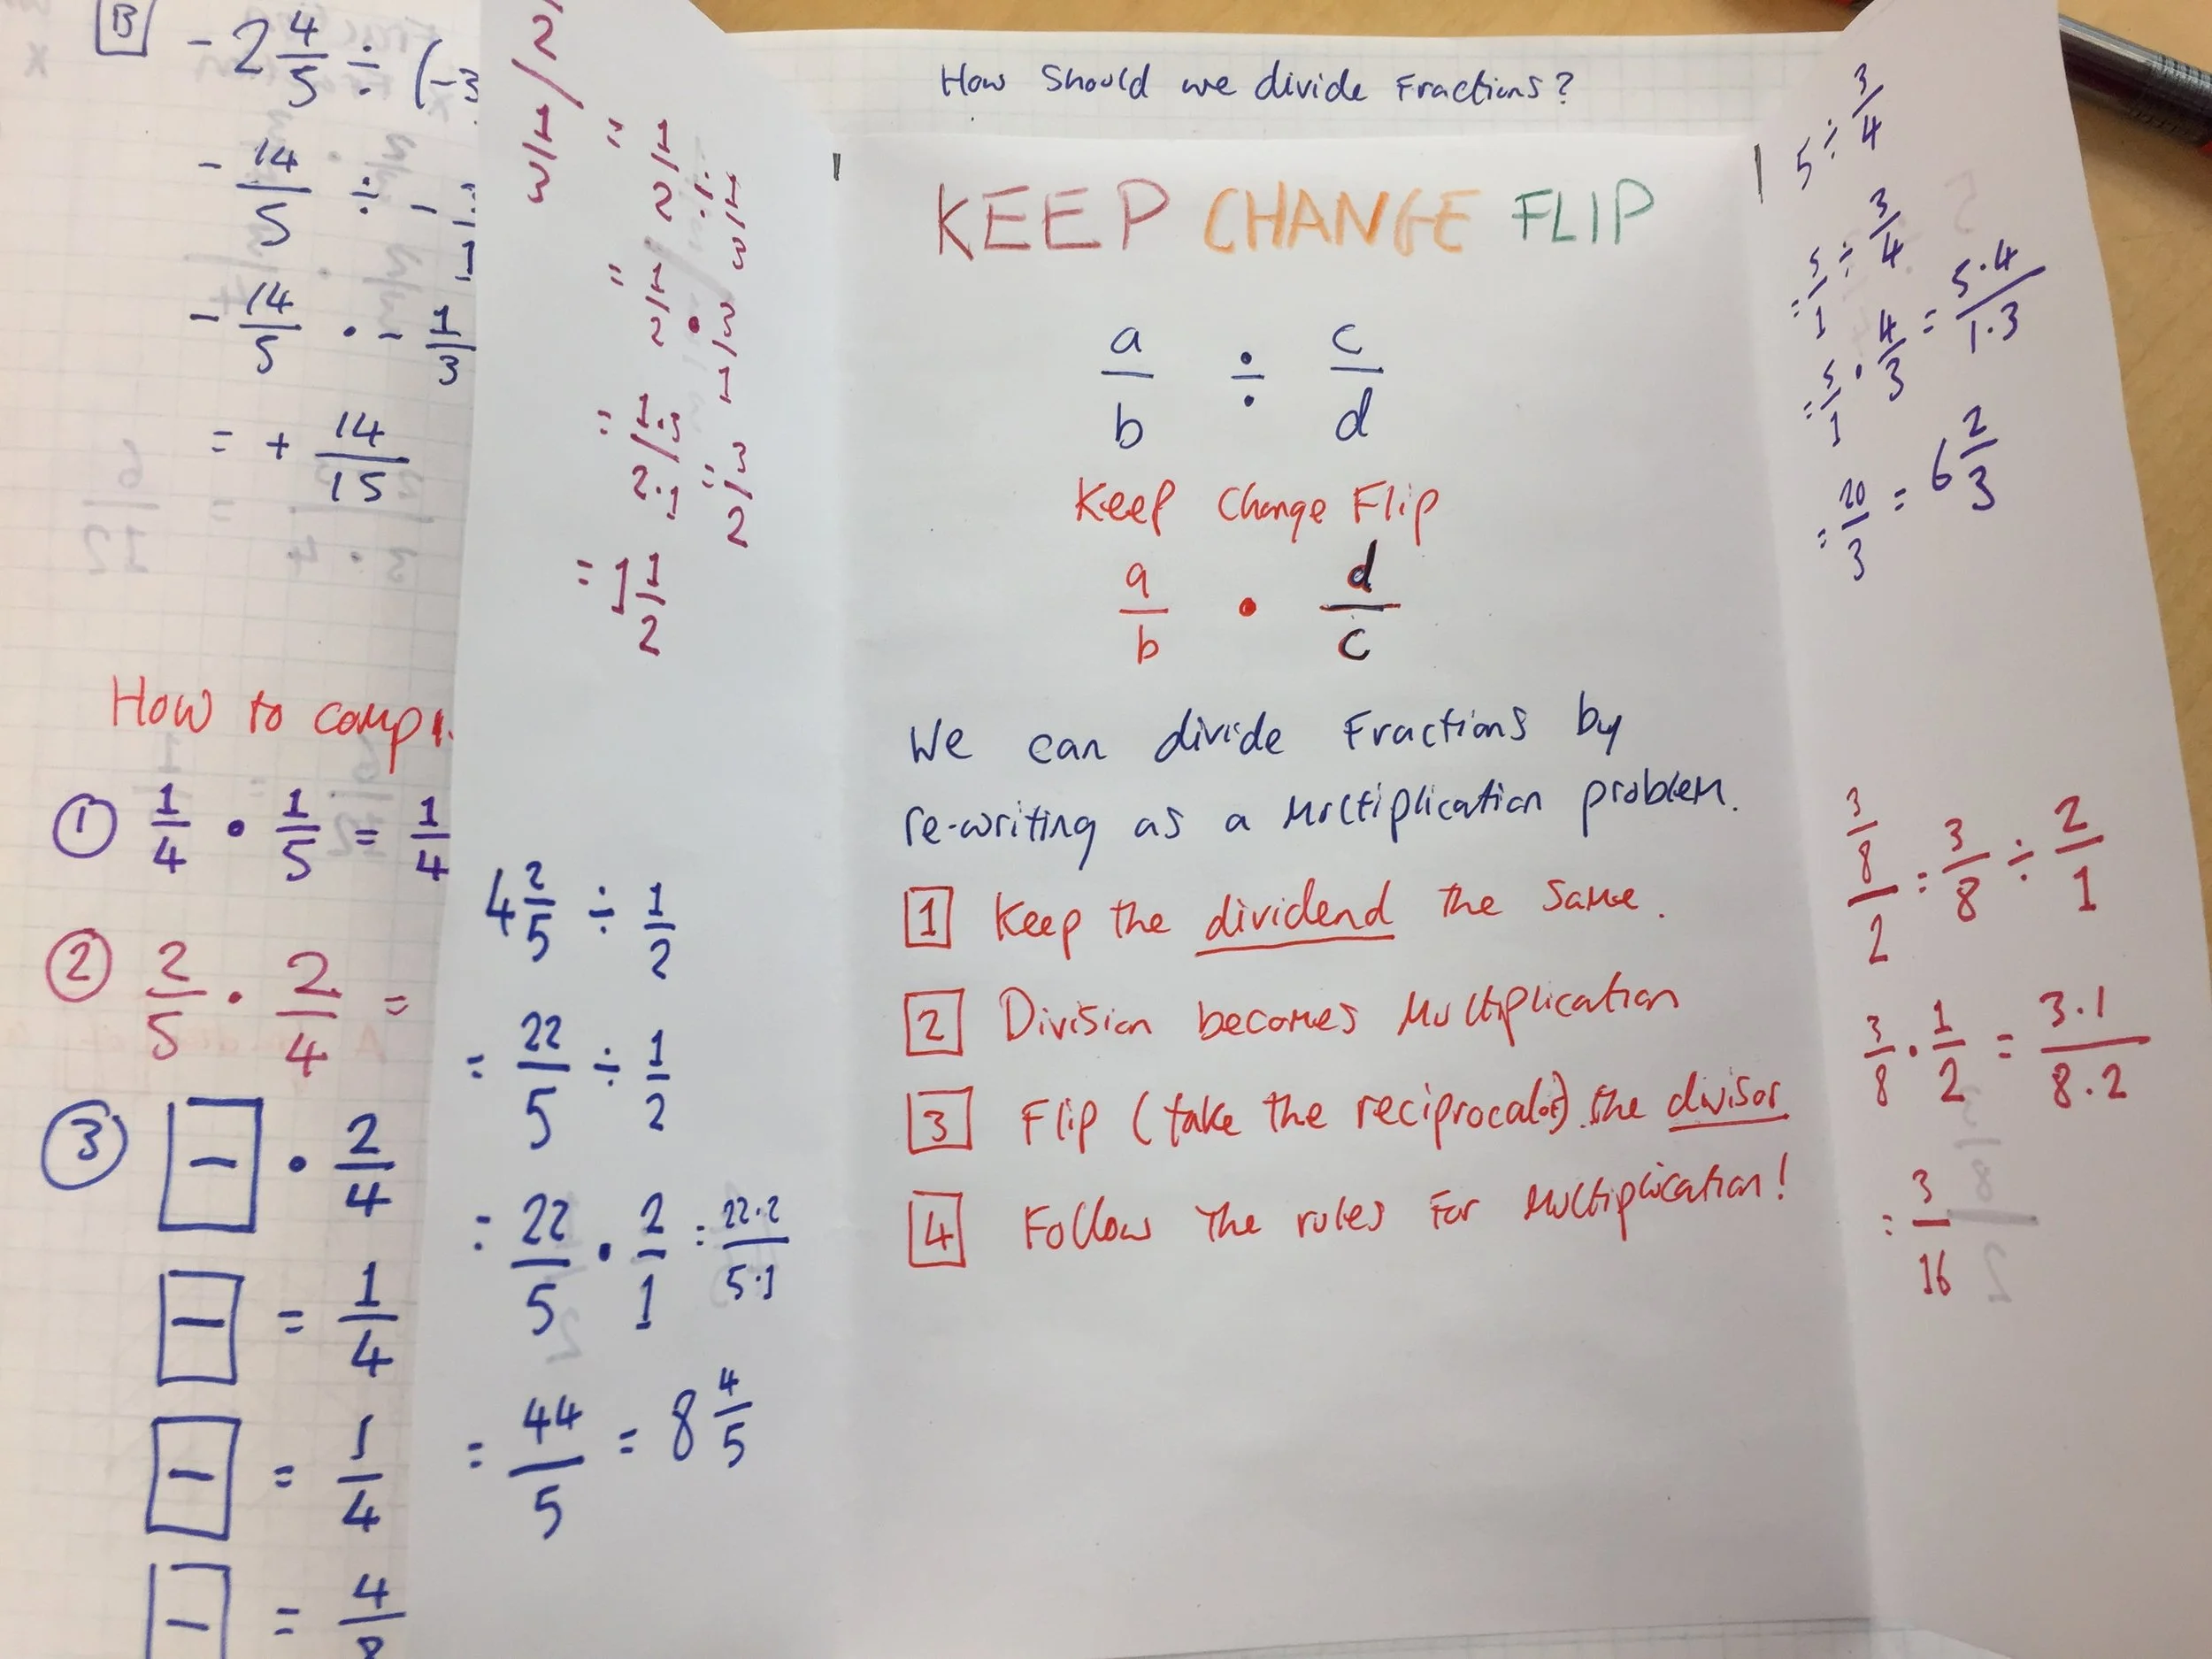 B -2 4/5 ÷ (-3
- 14/5 ÷ -
- 14/5 • - 1/3
= + 14/15
How to
① 1/4 • 1/5 = 1/4
② 2/5 • 2/4 =
③ [—] • 2/4
[—] = 1/4
[—] = 1/4
[—] = 4/8
= 1/2 ÷ 1/3
= 1/2 • 3/1
= 1·3/2·1 = 3/2
= 1 1/2
4 2/5 ÷ 1/2
= 22/5 ÷ 1/2
= 22/5 • 2/1 = 22·2/5·1
= 44/5 = 8 4/5
How Should we divide Fractions?
KEEP CHANGE FLIP
a/b ÷ c/d
Keep Change Flip
a/b • d/c
We can divide Fractions by
re-writing as a Multiplication problem.
1 Keep the dividend the same.
2 Division becomes Multiplication
3 Flip (take the reciprocal of) the divisor
4 Follow the rules for multiplication!
5 ÷ 3/4
= 5/1 ÷ 3/4
= 5/1 • 4/3 = 5·4/1·3
= 20/3 = 6 2/3
3/8/2 = 3/8 ÷ 2/1
3/8 • 1/2 = 3·1/8·2
= 3/16